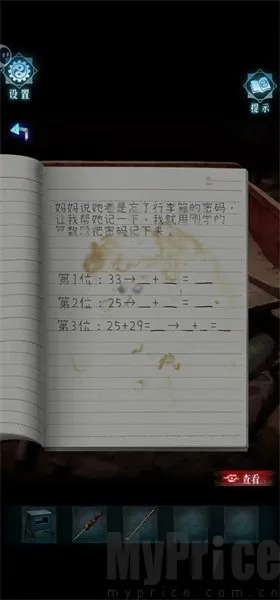 设置
提示
妈妈说她老是忘了行李箱的密码，
让我帮她记一下，我就用刚学的
算数题把密码记下来。
第1位：33→__+__=__
第2位：25→__+__=__
第3位：25+29=__→__+__=__
查看
MyPrice
myprice.com.cn